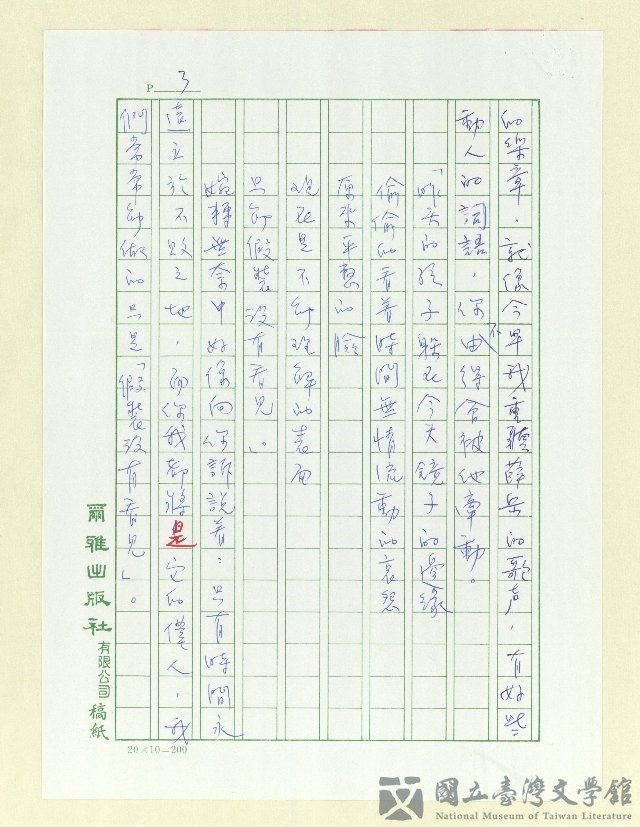 P 3
的樂章，就像今早我重聽薛岳的歌声，有好些
動人的詞語，你不由得會被他牽動。
「昨天的孩子躲在今天鏡子的邊緣
偷偷的看着時間無情流動的哀怨
厚桨平整的臉
現在是不能理解的表面
只能假裝沒有看見」。
婉轉無奈中好像向你訴說着：只有時間永
遠立於不敗之地，而你我都將是它的僕人，我
們常常能做的只是「假裝沒有看見」。
爾雅出版社有限公司稿紙
20×10=200
國立臺灣文學館
National Museum of Taiwan Literature